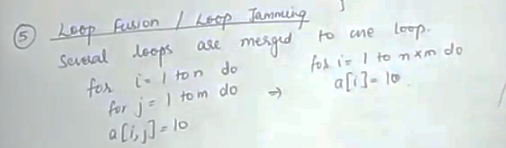 ⑤ Loop Fusion / Loop Jamming
Several loops are merged to one loop.
for i = 1 to n do
for j = 1 to m do
a[i,j] = 10
⇒
for i = 1 to n*m do
a[i] = 10